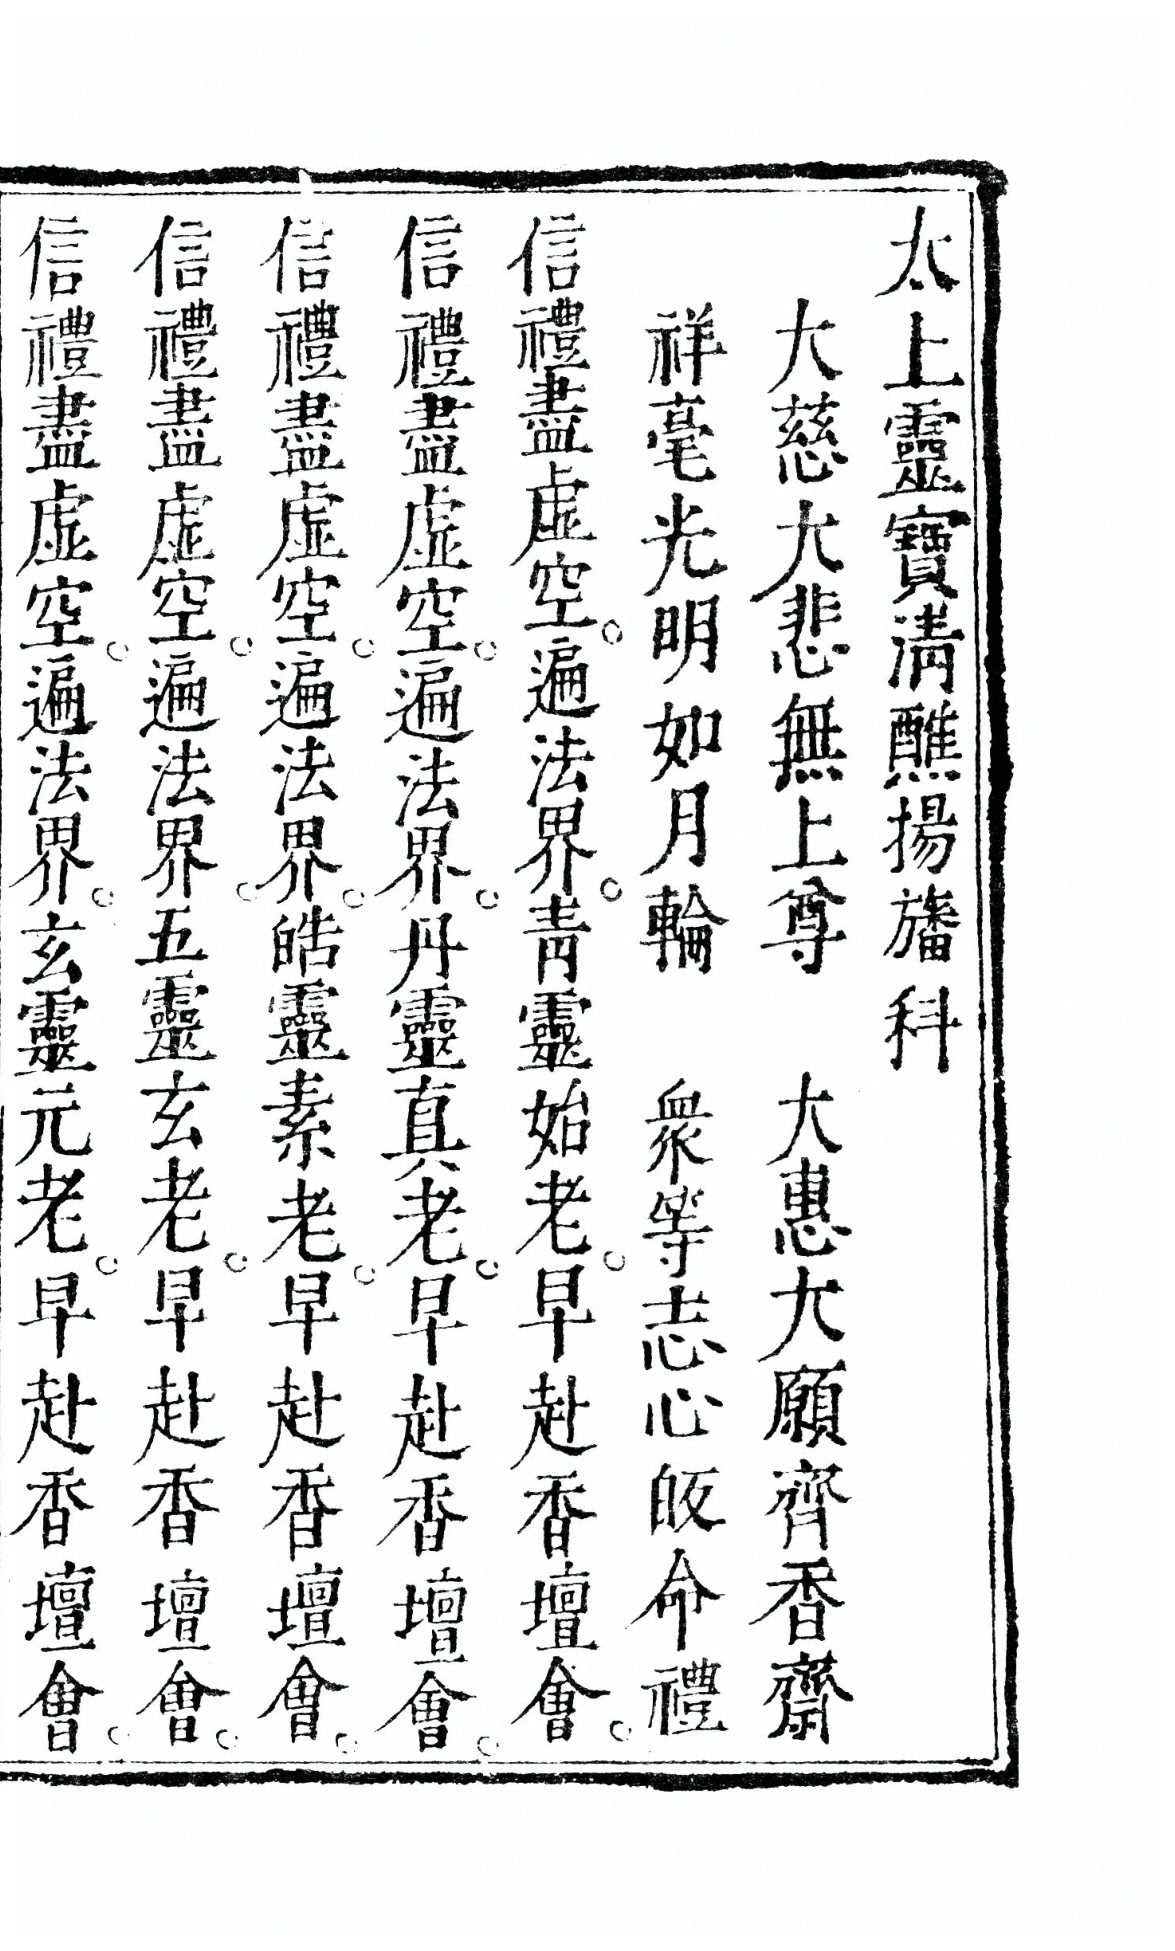 太上靈寶清醮揚旛科
大慈大悲無上尊　大惠大願齊香齋
祥毫光明如月輪　衆等志心皈命禮
信禮盡虛空。遍法界。青靈始老。早赴香壇會。
信禮盡虛空。遍法界。丹靈真老。早赴香壇會。
信禮盡虛空。遍法界。皓靈素老。早赴香壇會。
信禮盡虛空。遍法界。五靈玄老。早赴香壇會。
信禮盡虛空。遍法界。玄靈元老。早赴香壇會。